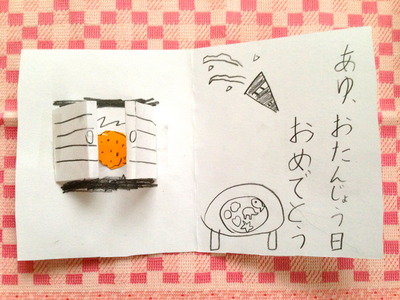 あゆ、おたんじょう日
おめでとう